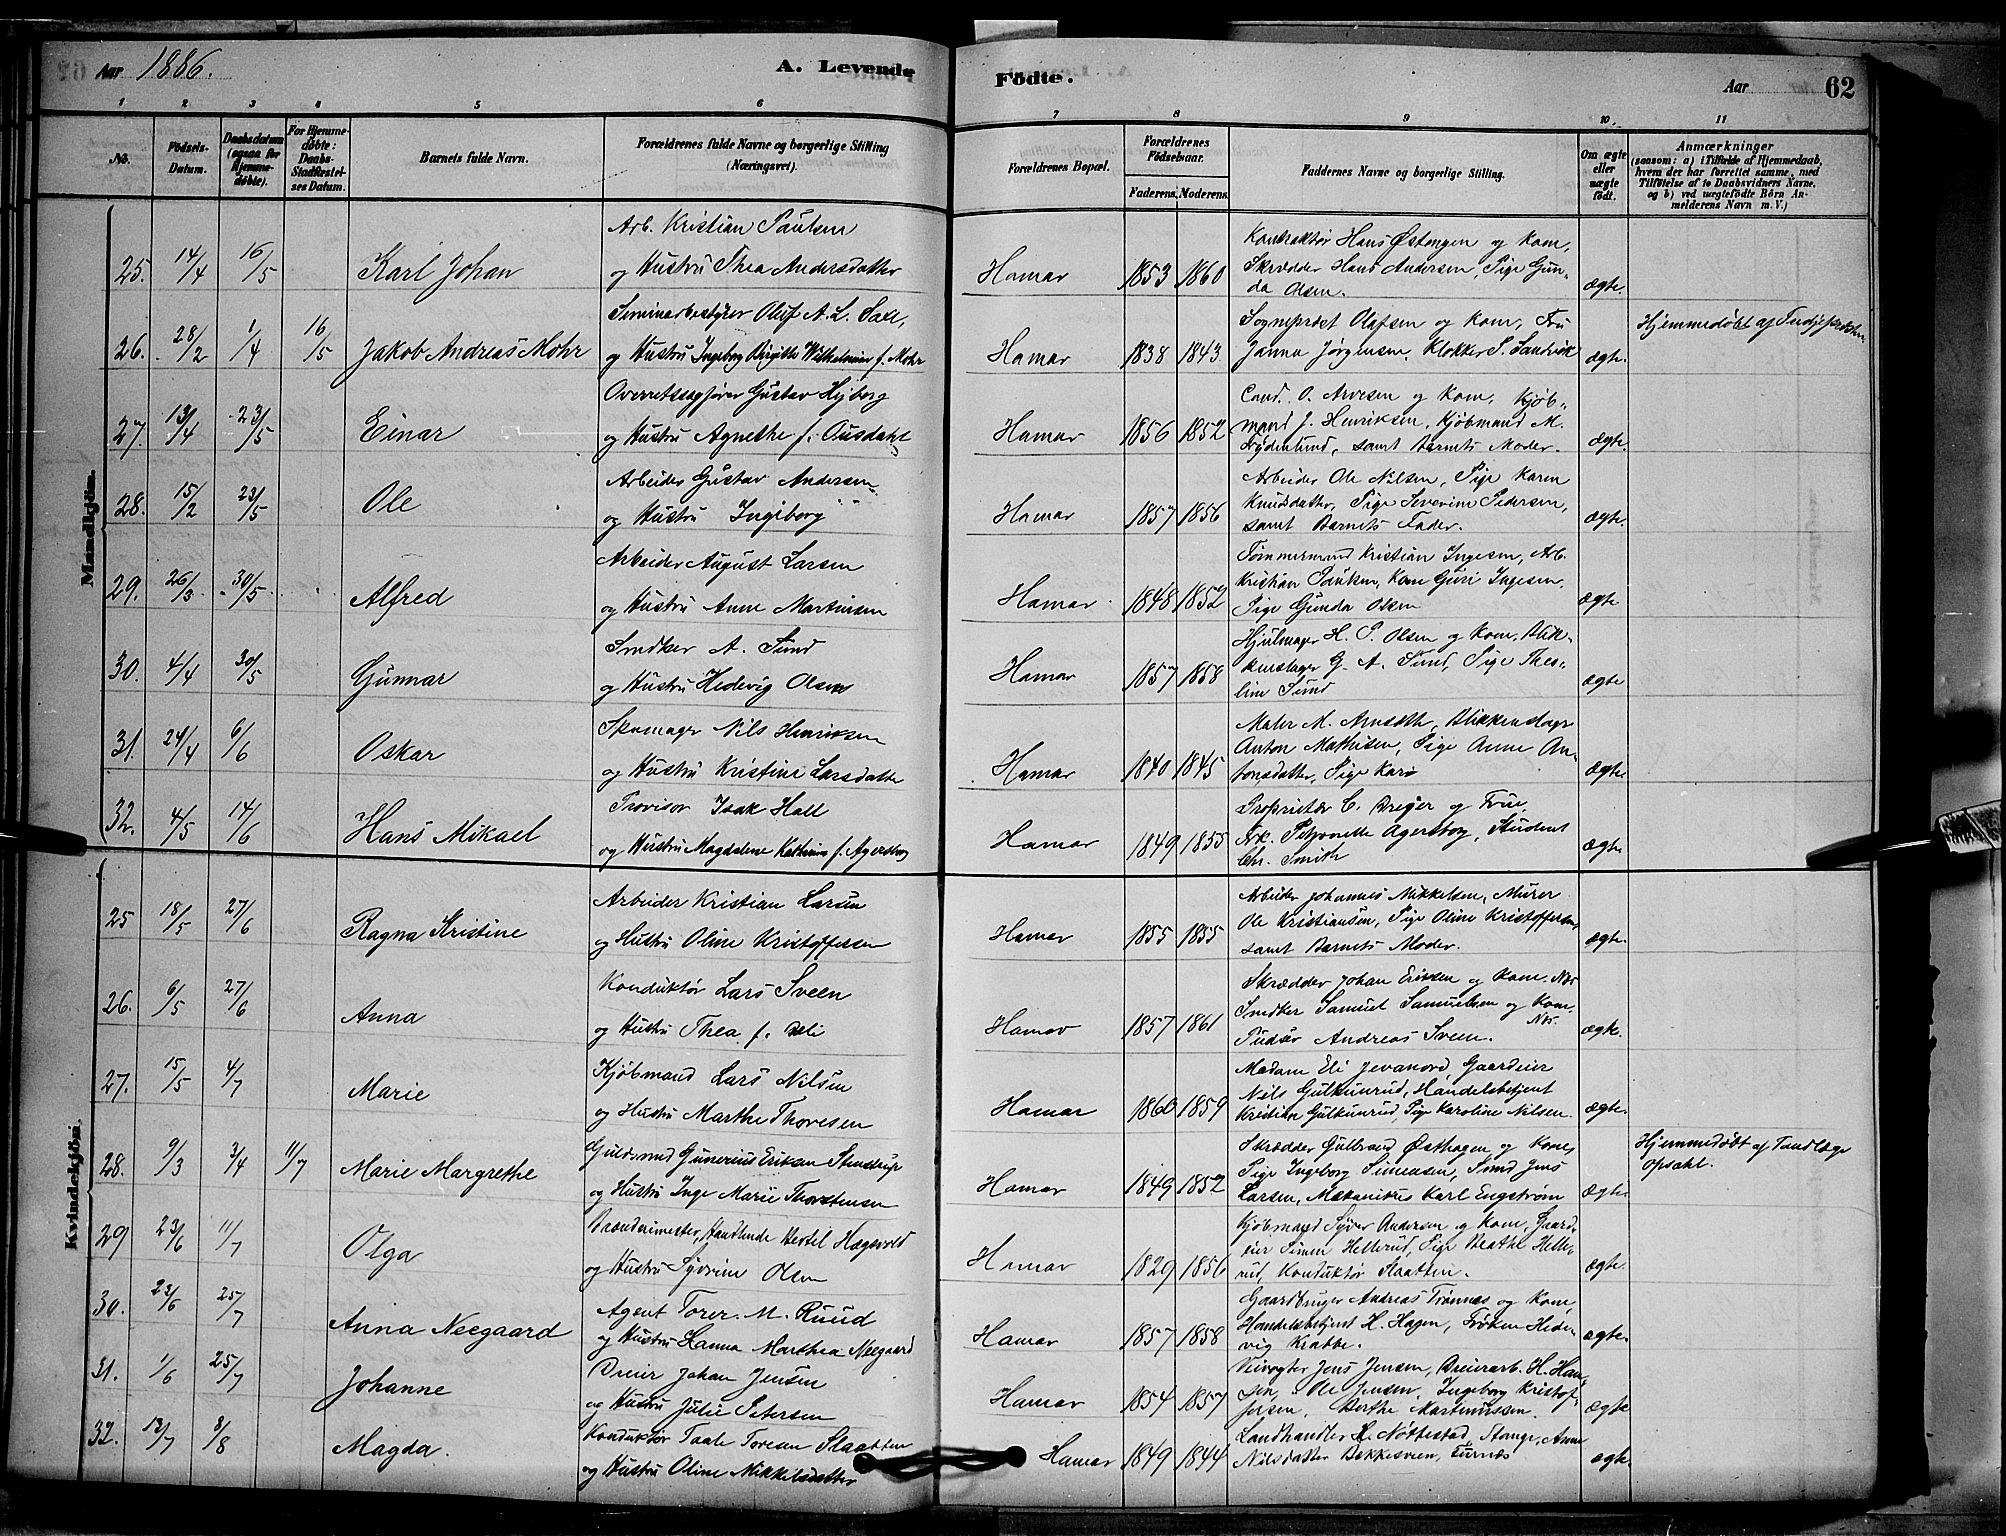 Aar 1886.
A. Levende Fødte.
Aar
62
1 2 3 4 5 6 7 8 9 10 11
No.
Fødsels-Datum.
Daabsdatum (ogsaa for Hjemmedøbte).
For Hjemmedøbte: Daabs-Stadfæstelses Datum.
Barnets fulde Navn.
Forældrenes fulde Navne og borgerlige Stilling (Næringsvei).
Forældrenes Bopæl.
Forældrenes Fødselsaar.
Faderens. Moderens.
Faddernes Navne og borgerlige Stilling.
Om ægte eller uægte født.
Anmærkninger
(saasom: a) i Tilfælde af Hjemmedaab, hvem der har forrettet samme, med Tilføielse af to Daabsvidners Navne, og b) ved uægtefødte Børn Anmelderens Navn m. V.)
Mandkjøn.
25. 14/4 16/5 Karl Johan
Arb. Kristian Paulsen
og Hustru Thea Andersdatter
Hamar 1853 1860
Kontraktør Hans Østengen og Kone,
Skrædder Hans Andersen, Pige Gun-
da Olsen.
ægte.
26. 28/2 1/4 16/5 Jakob Andreas Mohr
Seminarbestyrer Oluf A. L. Sall,
og Hustru Ingeborg Birgitte Wilhelmine f. Mohr
Hamar 1838 1843.
Sogneprest Olafsen og Kone, Fru
Janna Jørgensen, Klokker P. Sandvik
ægte.
Hjemmedøbt af
27. 13/4 23/5 Einar
Overretssagfører Gustav Hyberg
og Hustru Agnethe f. Ousdahl
Hamar 1856 1852
Cand. O. Arvesen og Kone, Kjøb-
mand J. Henriksen, Kjøbmand M.
Frydenlund, samt Barnets Moder.
ægte.
28. 15/2 23/5 Ole
Arbeider Gustav Andersen
og Hustru Ingeborg
Hamar 1857 1856
Arbeider Ole Nilsen, Pige Karen
Knudsdatter, Pige Severine Pedersen,
samt Barnets Fader.
ægte.
29. 26/3 30/5 Alfred
Arbeider August Larsen
og Hustru Anne Martinsen
Hamar 1848 1852
Tømmermand Kristian Ingesen, Arb.
Kristian Paulsen, Kone Guri Ingesen,
Pige Gunda Olsen
ægte
30. 4/4 30/5 Gunnar
Snedker A. Sund
og Hustru Hedevig Olsen
Hamar 1857 1858
Hjulmager H. P. Olsen og Kone, Blik-
kenslager G. A. Sund, Pige Theo-
line Sund
ægte
31. 24/4 6/6 Oskar
Skomager Nils Henriksen
og Hustru Kristine Larsdatter
Hamar 1840 1845
Maler M. Arnseth, Blikkenslager
Anton Mathisen, Pige Anne An-
tonsdatter, Pige Kari
ægte.
32. 4/5 14/6 Hans Mikael
Provisor Isak Hall
og Hustru Magdalene Kathrine f. Agersborg
Hamar 1849 1855
Proprietær C. Dreyer og Frue,
Frk. Petronelle Agersborg, Student
Chr. Smith
ægte
Kvindekjøn.
25 18/5 27/6 Ragna Kristine
Arbeider Kristian Larsen
og Hustru Oline Kristoffersen
Hamar 1855 1855
Arbeider Johannes Mikkelsen, Murer
Ole Kristiansen, Pige Oline Kristoffersen,
samt Barnets Moder.
ægte.
26. 6/5 27/6 Anna
Konduktør Lars Sveen
og Hustru Thea f. Deli
Hamar 1857 1861
Skrædder Johan Eriksen og Kone, Næs
Snedker Samuel Samuelsen og Kone, Næs.
Andreas Sveen.
ægte.
27. 15/5 4/7 Marie
Kjøbmand Lars Nilsen
og Hustru Marthe Thoresen
Hamar 1860 1859
Madam Eli Jevanord, Gaardeier
Nils Gulkunrud, Handelsbetjent
Kristian Gulkunrud, Pige Karoline Nilsen.
ægte.
28. 9/3 3/4 11/7 Marie Margrethe
Guldsmed Gunerius Eriksen Stenstrup
og Hustru Inge Marie Thorstensen
Hamar 1849 1852
Skrædder Gulbrand Østhagen og Kone,
Pige Ingeborg Simensen, Smed Jens
Larsen, Mekanikus Karl Engstrøm
ægte.
Hjemmedøbt af Tandlæge
Opdahl.
29 23/6 11/7 Olga
Brænderimester, Handlende Bertel Hægsvold
og Hustru Syverine Olsen
Hamar 1829 1856
Kjøbmand Syver Andersen og Kone, Gaard-
eier Simen Hellerud, Pige Beathe Helle-
rud, Konduktør Slaatten.
ægte.
30. 23/6 25/7 Anna Neegaard
Agent Torer M. Ruud
og Hustru Hanna Marthea Neegaard
Hamar 1857 1858
Gaardbruger Andreas Trønnæs og Kone,
Handelsbetjent H. Hagen, Frøken Hede-
vig Krabbe.
ægte.
31. 1/6 25/7 Johanne
Dreier Johan Jensen
og Hustru Julie Petersen
Hamar 1854 1857
Veivogter Jens Jensen, Dreierarb. H. Han-
sen, Ole Jensen, Ingeborg Kristof-
fersen, Berthe Martinussen.
ægte
32. 13/7 8/8 Magda.
Konduktør Taale Toresen Slaatten
og Hustru Oline Mikkelsdatter
Hamar 1849 1844
Landhandler L. Nøttestad, Stange, Anne
Nilsdatter Bekkesveen, Furnæs
ægte.